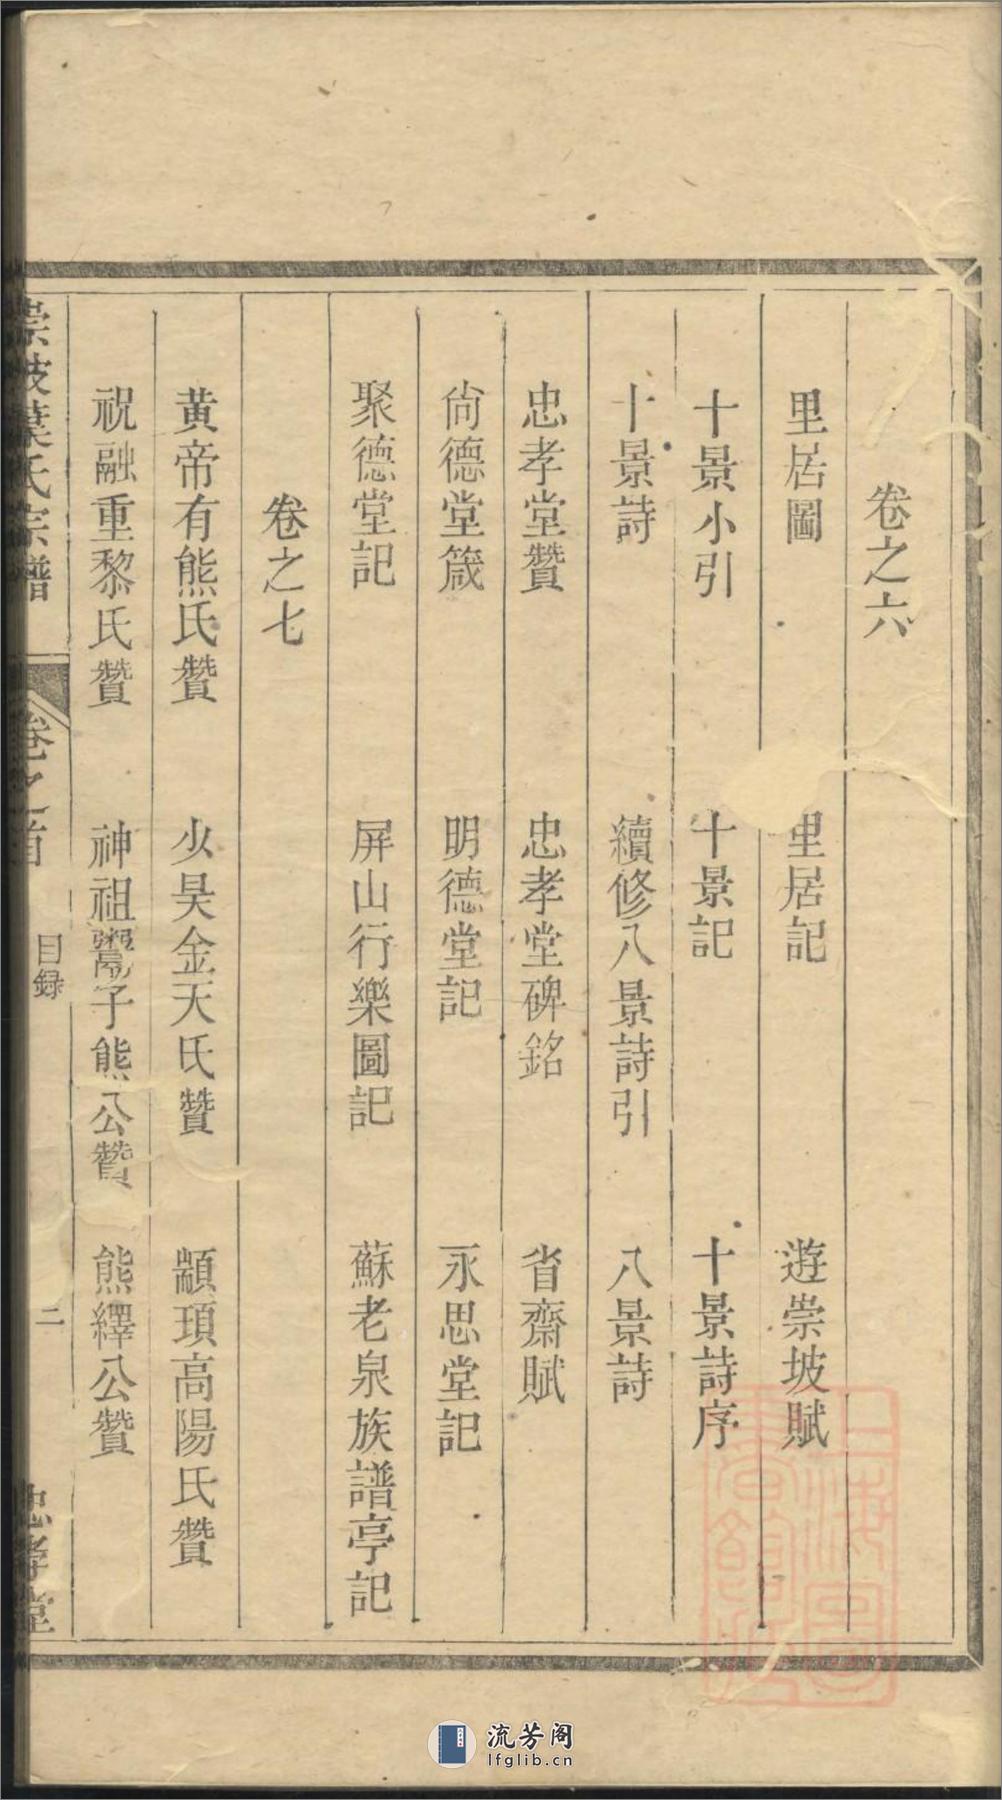 卷之六
里居圖　里居記　遊崇坡賦
十景小引　十景記　十景詩序
十景詩　續修八景詩引　八景詩
忠孝堂贊　忠孝堂碑銘　省齋賦
尙德堂箴　明德堂記　永思堂記
聚德堂記　屏山行樂圖記　蘇老泉族譜亭記
卷之七
黄帝有熊氏贊　少昊金天氏贊　顓頊高陽氏贊
祝融重黎氏贊　神祖鬻子熊公贊　熊繹公贊
崇坡葉氏宗譜　卷之首　目録　二　忠孝堂
上海圖書館藏
流芳阁
lfglib.cn